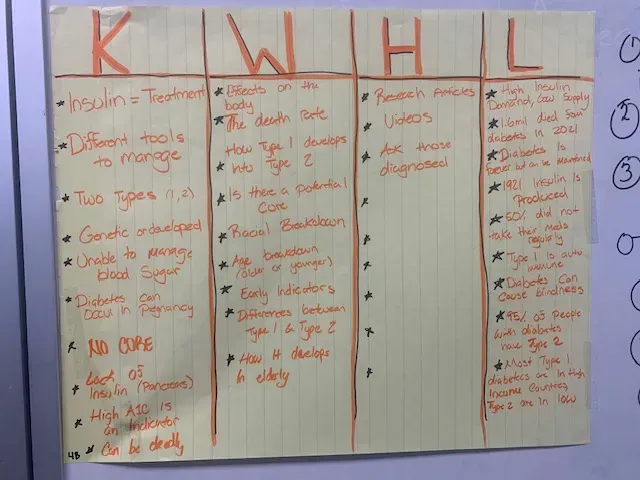 K
W
H
L
Insulin = Treatment
Different tools
to manage
Two Types (1,2)
Genetic or developed
Unable to manage
blood Sugar
Diabetes can
Occur In Pregnancy
NO CURE
Lack of
Insulin (Pancreas)
High A1C is
an Indicator
Can be deadly
4B
Effects on the
body
The death rate
How Type 1 develops
Into Type 2
Is there a potential
Cure
Racial Breakdown
Age breakdown
(older or younger)
Early Indicators
Differences between
Type 1 & Type 2
How it develops
In elderly
Research Articles
Videos
Ask those
diagnosed
High Insulin
Demand, Low Supply
1.6mil died from
diabetes in 2021
Diabetes Is
forever but can be maintained
1921 Insulin Is
Produced
50% did not
take their meds
regularly
Type 1 is auto
immune
Diabetes Can
Cause blindness
95% of People
with diabetes
have Type 2
Most Type 1
diabetes are in High
Income Countries,
Type 2 are in low
1
2
3